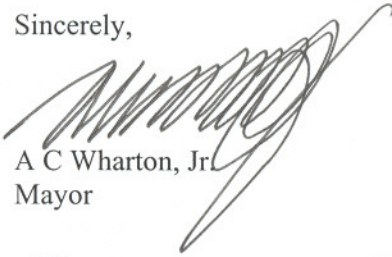 Sincerely,
A C Wharton, Jr.
Mayor